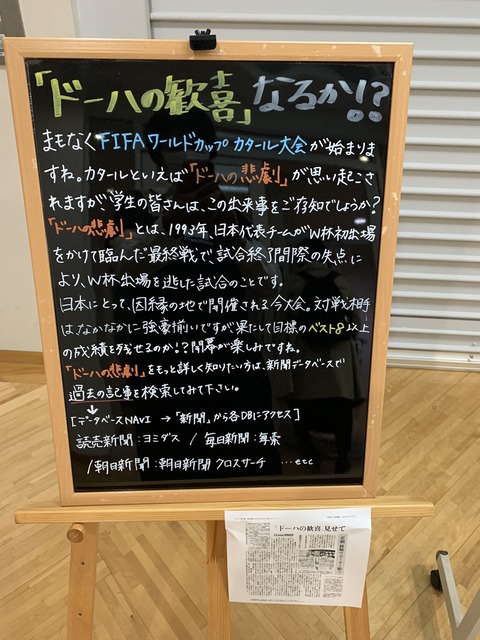 「ドーハの歓喜」なるか!?
まもなくFIFAワールドカップ カタール大会が始まりま
すね。カタールといえば「ドーハの悲劇」が思い起こさ
れますが学生の皆さんは、この出来事をご存知でしょうか?
「ドーハの悲劇」とは、1993年、日本代表チームがW杯初出場
をかけて臨んだ最終戦で試合終了間際の失点に
より、W杯出場を逃した試合のことです。
日本にとって、因縁の地で開催される今大会。対戦相手
は、なかなかに強豪揃いですが果たして目標のベスト8以上
の成績を残せるのか!?開幕が楽しみですね。
「ドーハの悲劇」をもっと詳しく知りたい方は、新聞データベースで
過去の記事を検索してみて下さい。
↓
[データベースNAVI →「新聞」から各DBにアクセス]
読売新聞:ヨミダス / 毎日新聞:毎索
/朝日新聞:朝日新聞クロスサーチ …etc
「ドーハの歓喜」見せて